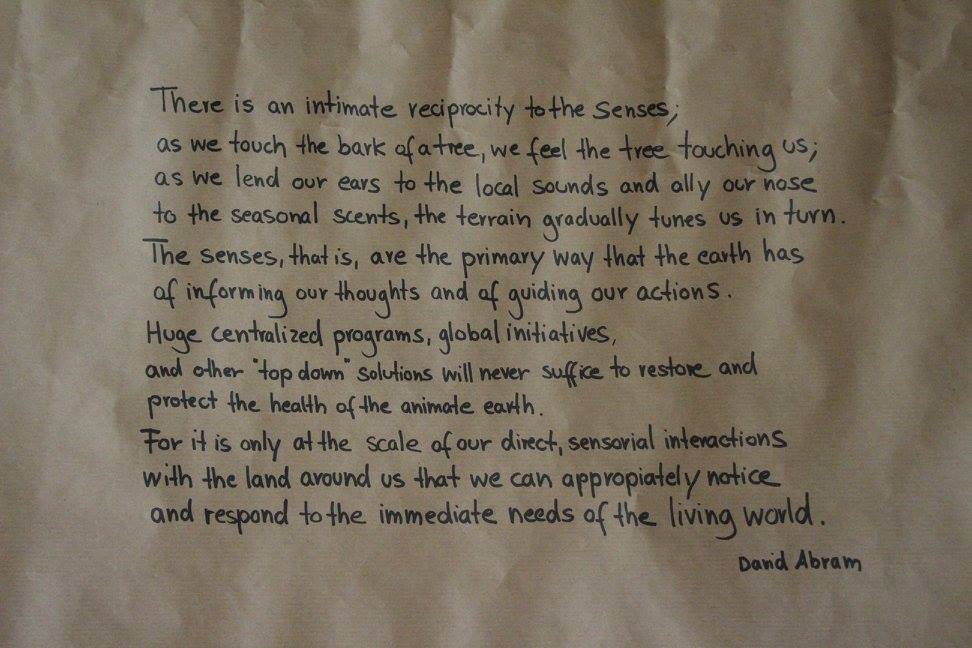 There is an intimate reciprocity to the senses;
as we touch the bark of a tree, we feel the tree touching us;
as we lend our ears to the local sounds and ally our nose
to the seasonal scents, the terrain gradually tunes us in turn.
The senses, that is, are the primary way that the earth has
of informing our thoughts and of guiding our actions.
Huge centralized programs, global initiatives,
and other "top down" solutions will never suffice to restore and
protect the health of the animate earth.
For it is only at the scale of our direct, sensorial interactions
with the land around us that we can appropiately notice
and respond to the immediate needs of the living world.
David Abram